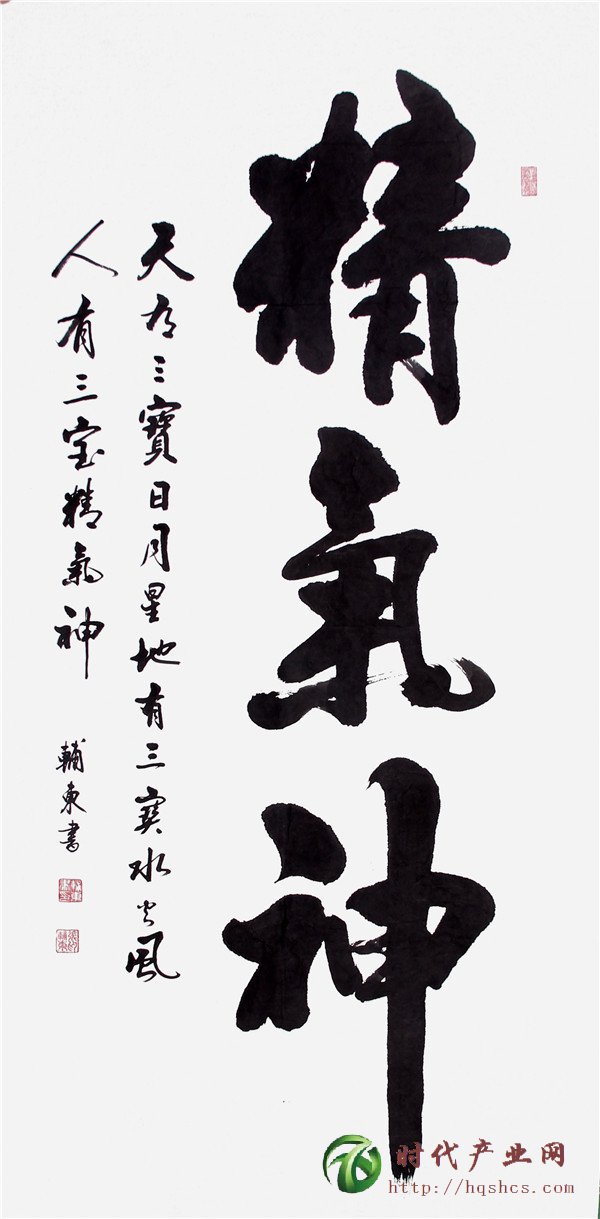 精氣神
天有三寶日月星地有三寶水火風
人有三宝精氣神
輔東書
时代产业网
http://hqshcs.com